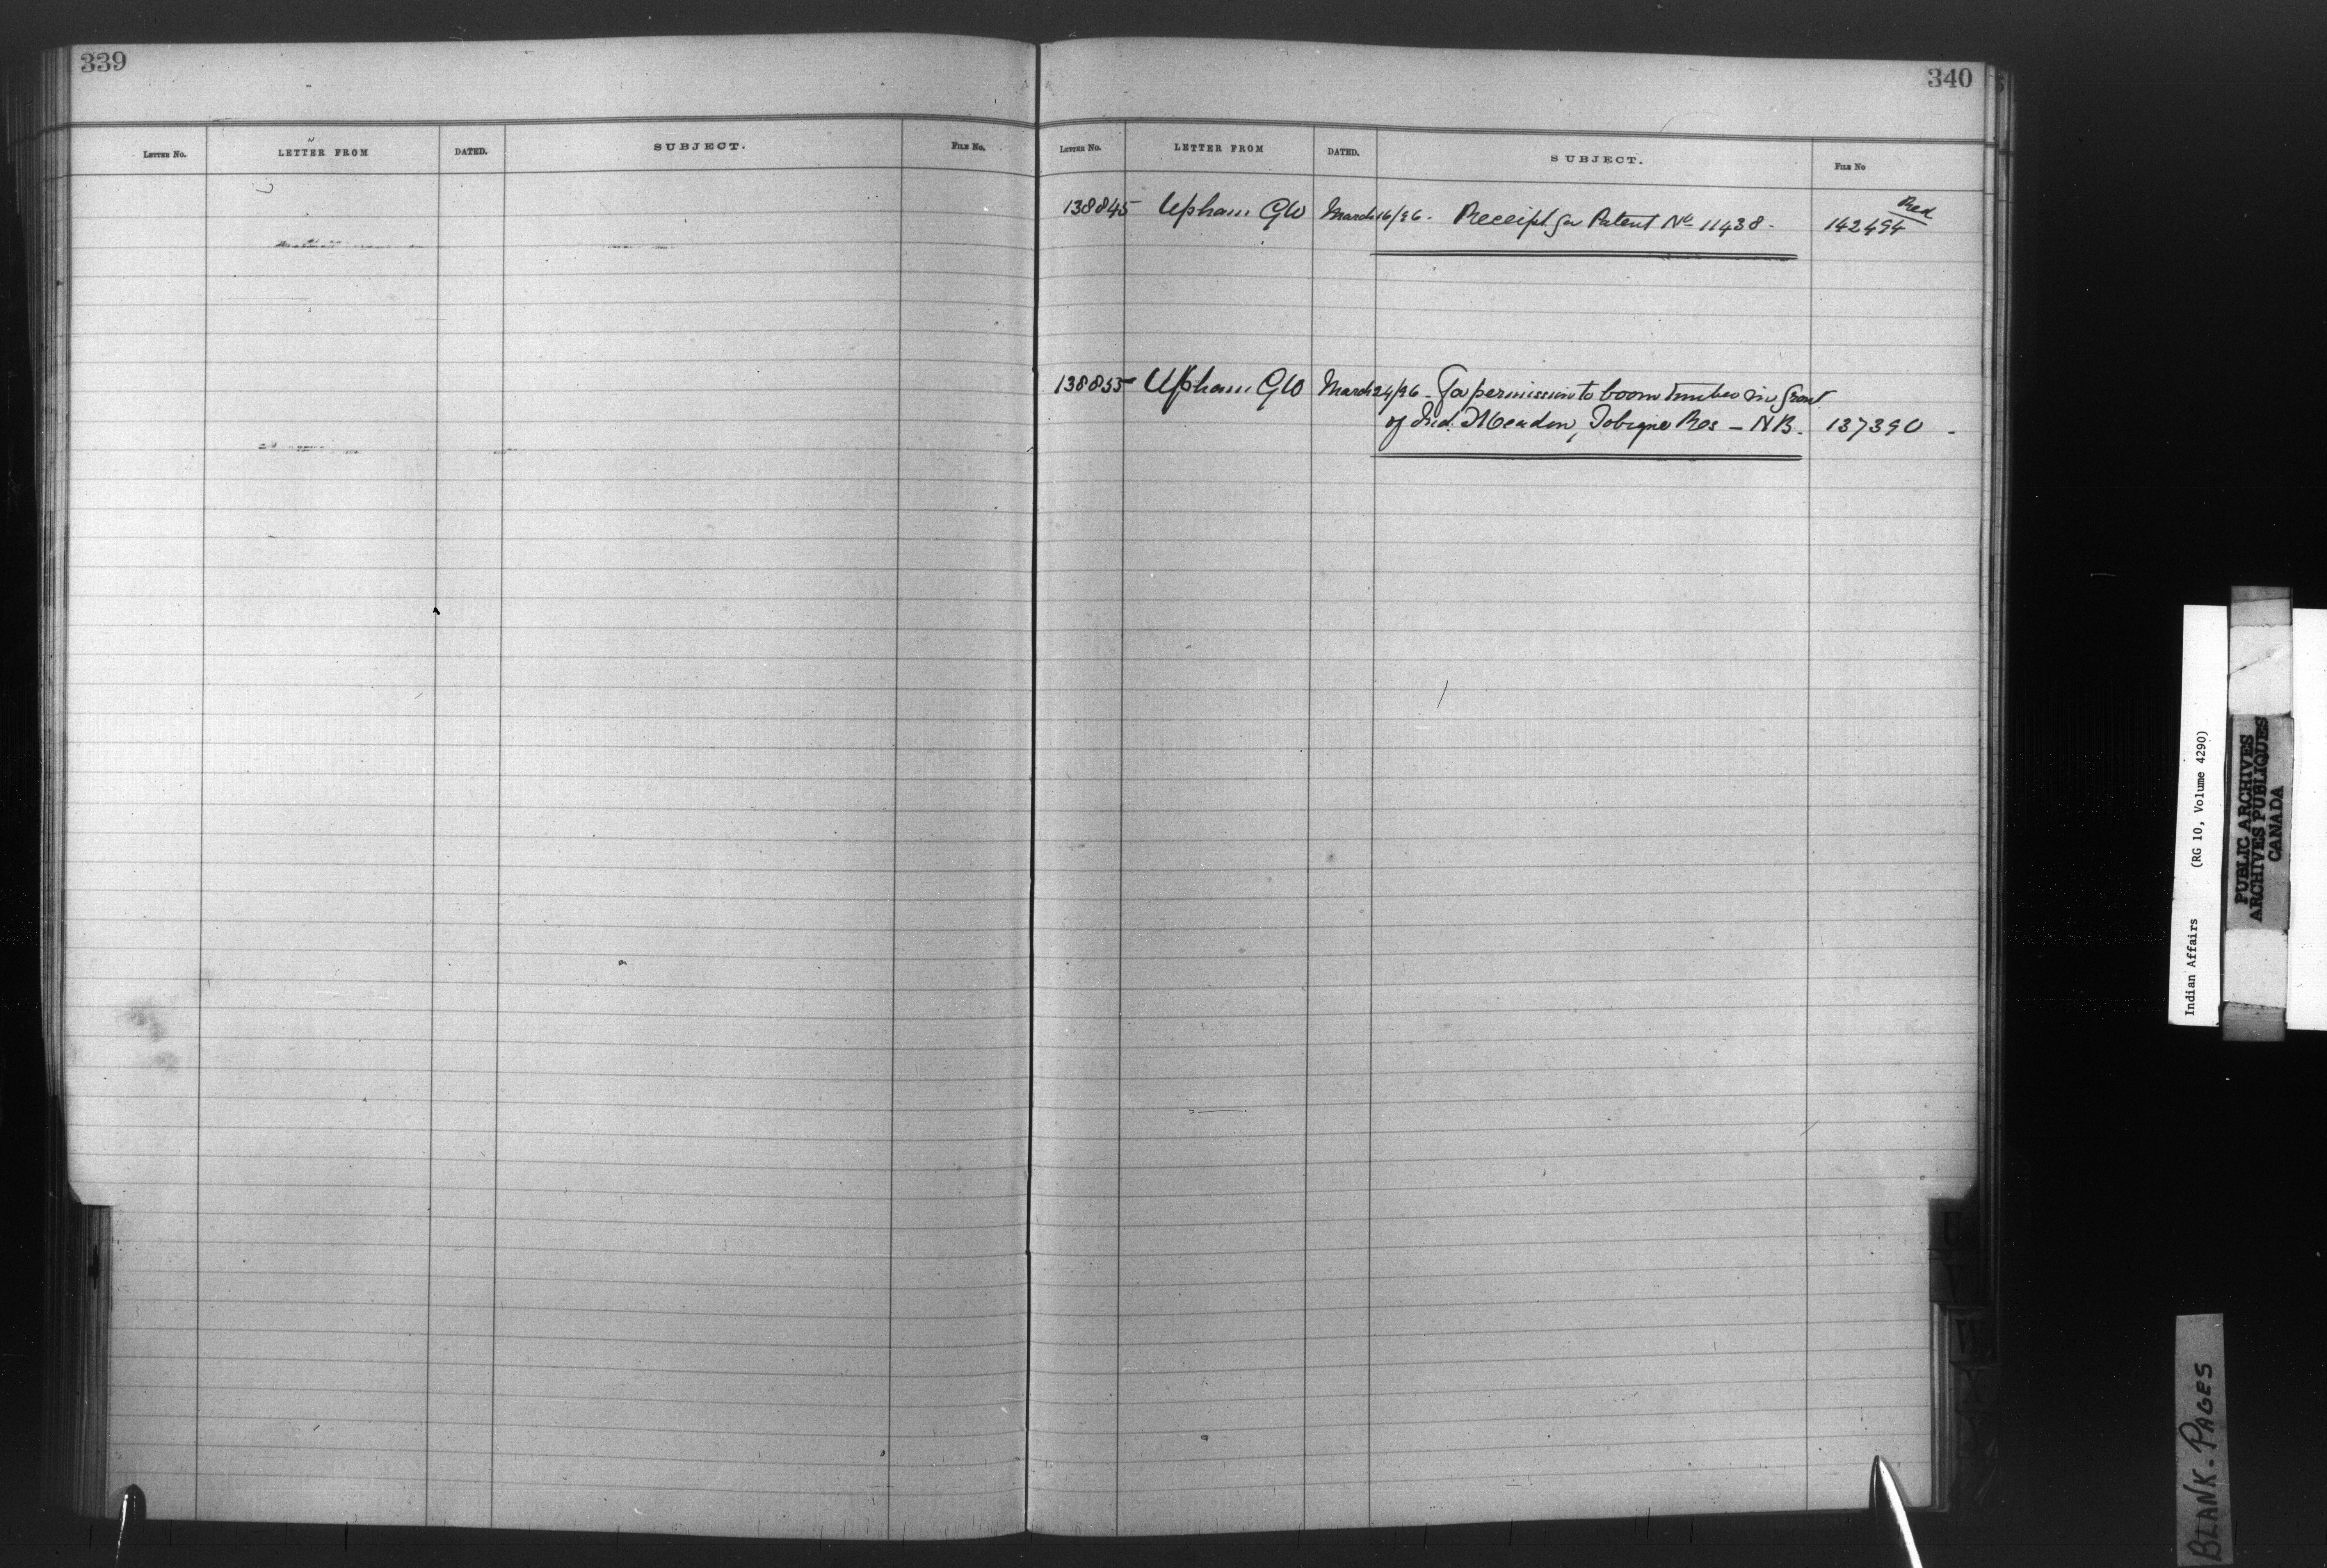 339
LETTER NO. LETTER FROM DATED. SUBJECT. FILE NO.
340
LETTER NO. LETTER FROM DATED. SUBJECT. FILE NO
138845 Upham GW March 16/96. Receipt for Patent No 11438. Red
142494
138855 Upham GW March 24/96. For permission to boom timber in front
of Ind. Meadow, Tobique Res - NB. 137390 -
U
V
W
X
Y
Indian Affairs (RG 10, Volume 4290)
PUBLIC ARCHIVES
ARCHIVES PUBLIQUES
CANADA
BLANK-PAGES